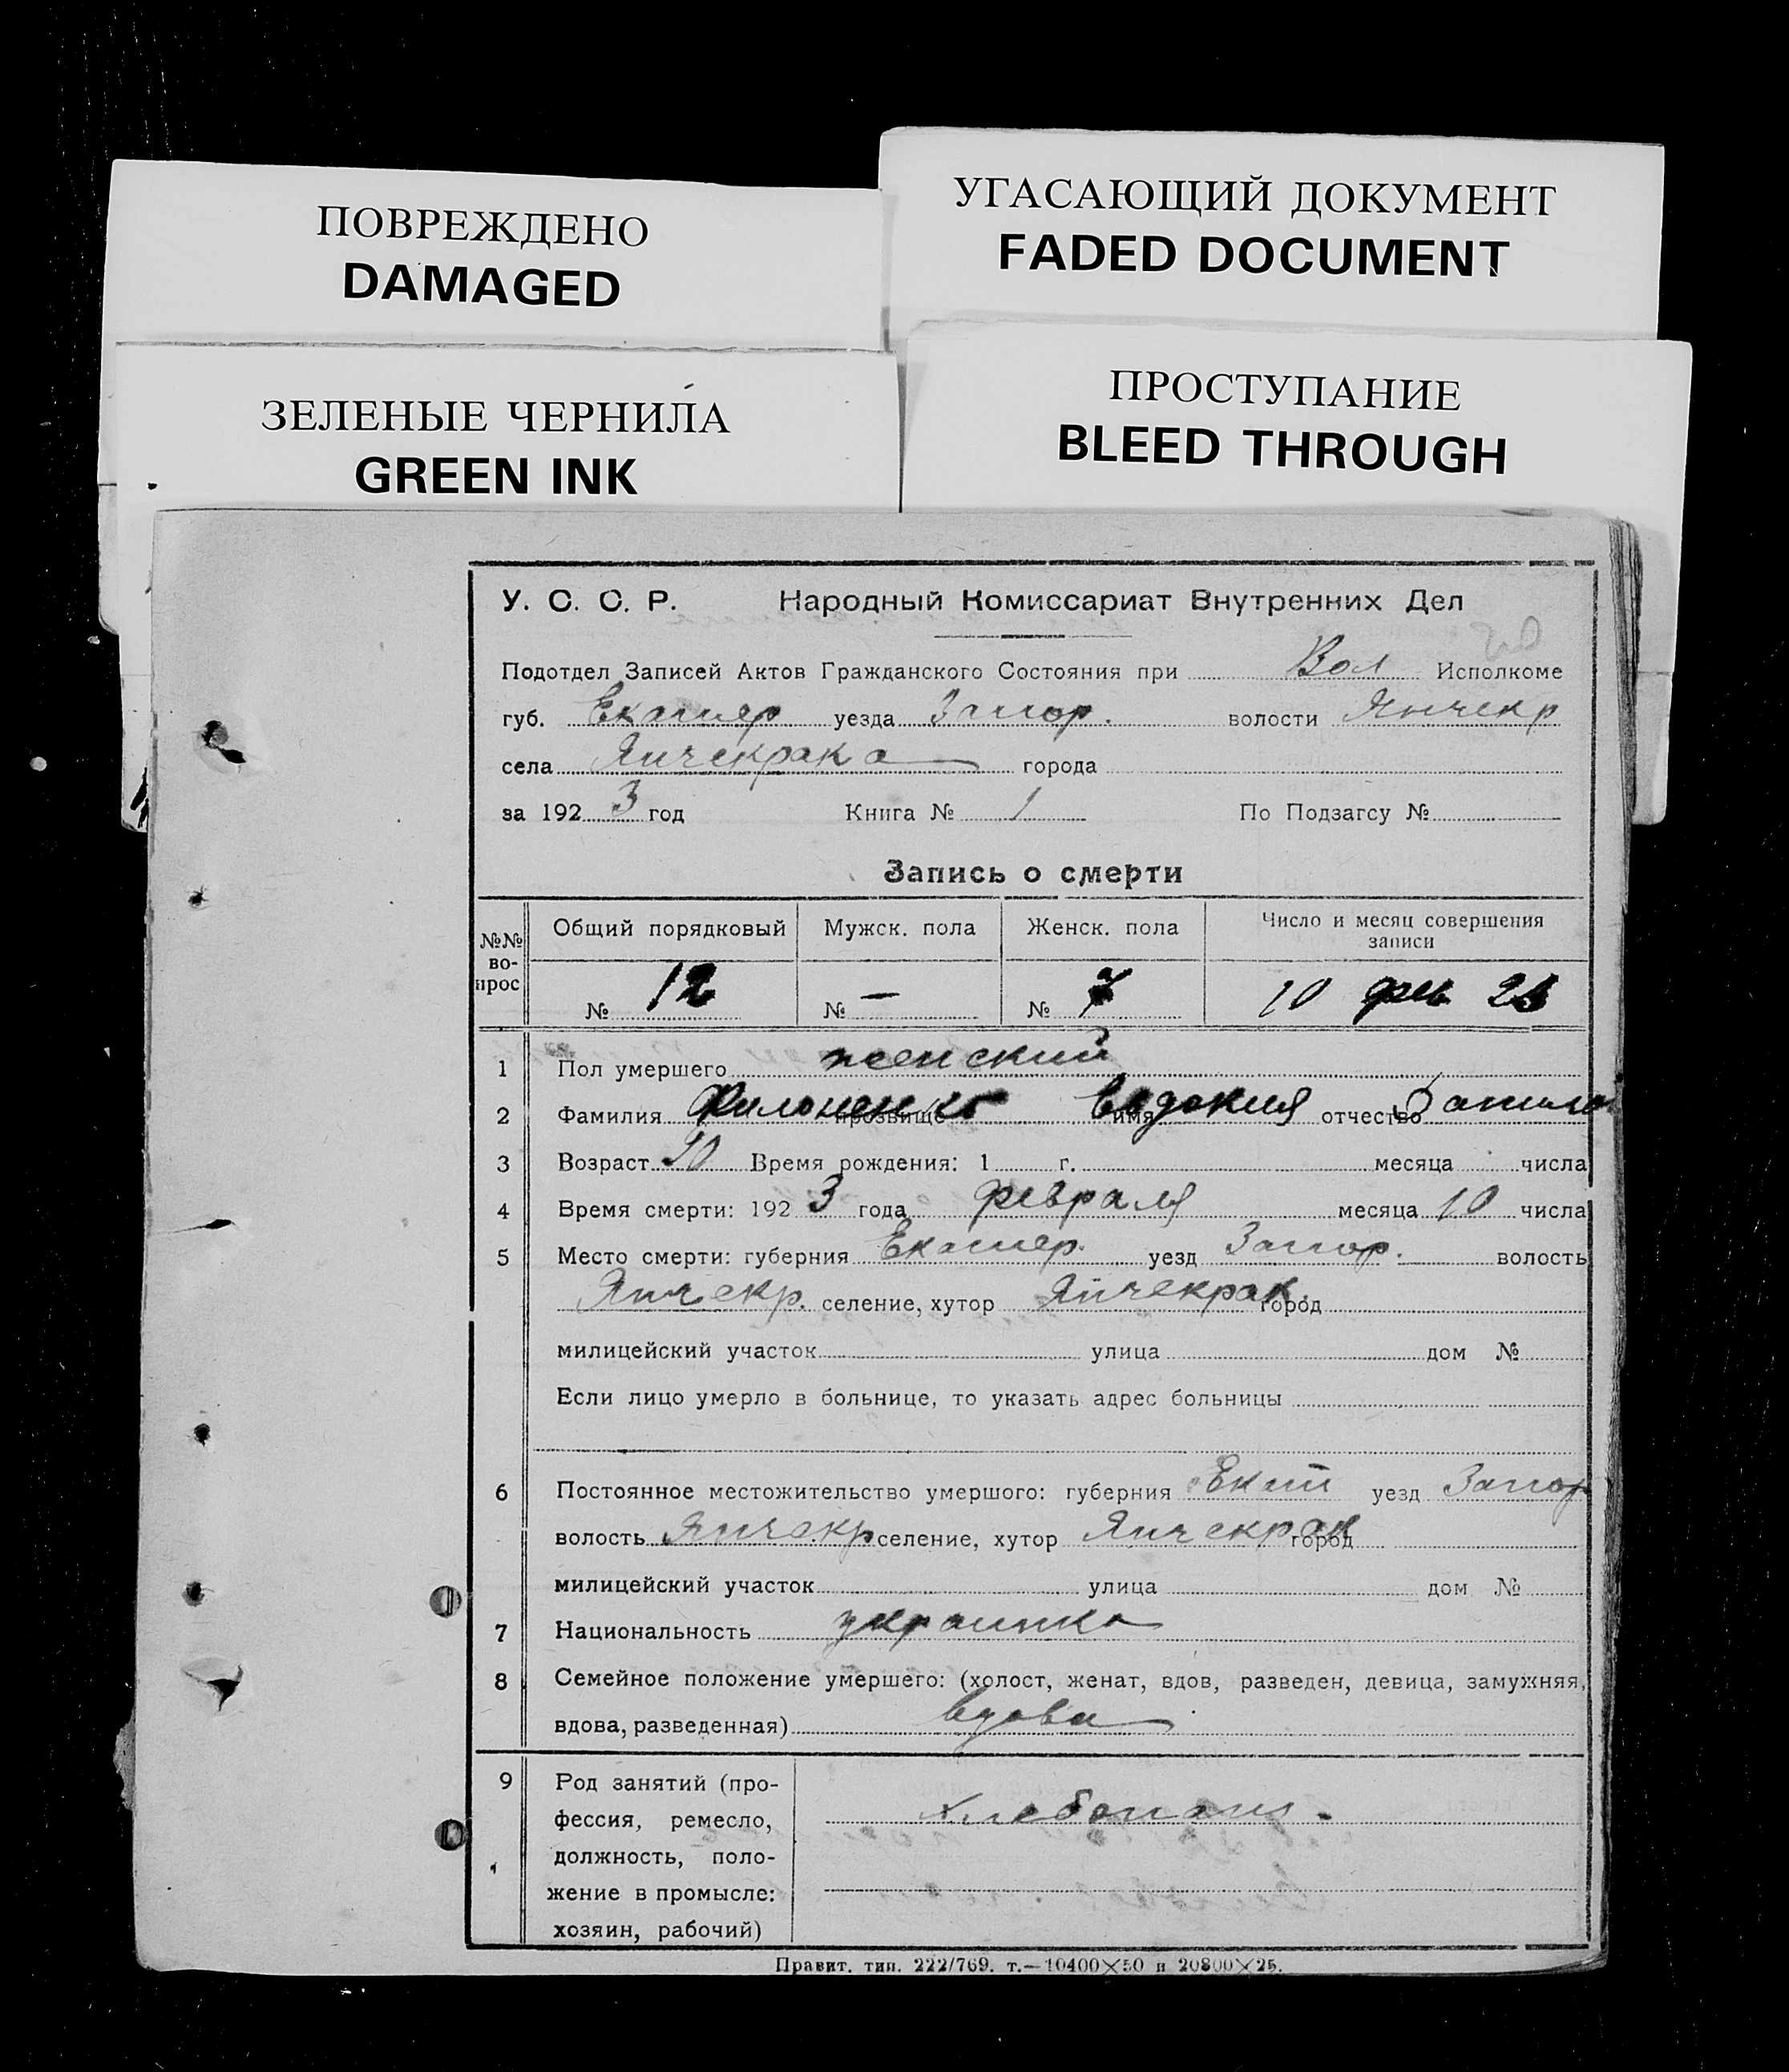 ПОВРЕЖДЕНО
DAMAGED
УГАСАЮЩИЙ ДОКУМЕНТ
FADED DOCUMENT
ЗЕЛЕНЫЕ ЧЕРНИЛА
GREEN INK
ПРОСТУПАНИЕ
BLEED THROUGH
У. С. С. Р. Народный Комиссариат Внутренних Дел
Подотдел Записей Актов Гражданского Состояния при Вол Исполкоме
губ. Екатер уезда Запор. волости Янчекр
села Янчекрака города
за 1923 год Книга № 1 По Подзагсу №
Запись о смерти
№№ вопрос Общий порядковый Мужск. пола Женск. пола Число и месяц совершения записи
№ 12 № — № 7 10 фев 23
1 Пол умершего женский
2 Фамилия Филоненко прозвище имя Евдокия отчество
3 Возраст Время рождения: 1 г. месяца числа
4 Время смерти: 1923 года февраля месяца 10 числа
5 Место смерти: губерния Екатер. уезд Запор. волость
Янчекр. селение, хутор Янчекрак город
милицейский участок улица дом №
Если лицо умерло в больнице, то указать адрес больницы
6 Постоянное местожительство умершого: губерния Екат уезд Запор
волость Янчекр селение, хутор Янчекрак город
милицейский участок улица дом №
7 Национальность украинка
8 Семейное положение умершего: (холост, женат, вдов, разведен, девица, замужняя,
вдова, разведенная) вдова
9 Род занятий (про-
фессия, ремесло, хлебопаш.
должность, поло-
жение в промысле:
хозяин, рабочий)
Правит. тип. 222/769. т.—10400×50 и 20800×25.